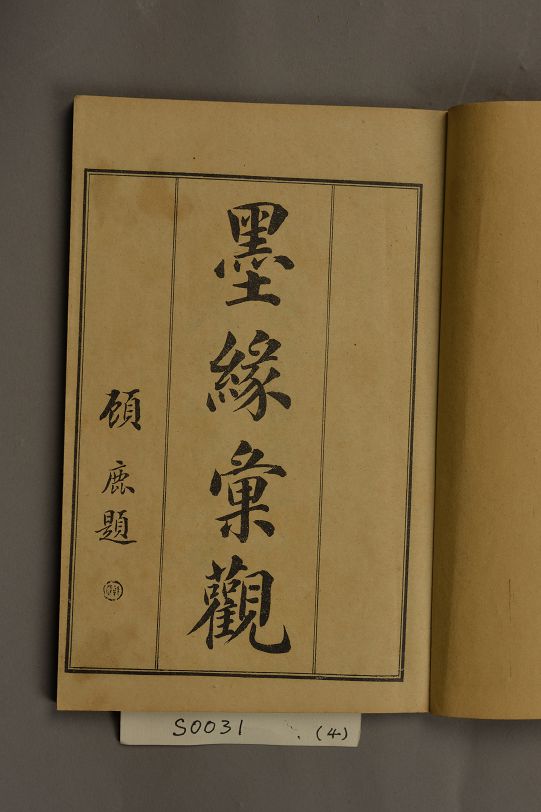 墨緣彙觀
顧鹿題
S0031 (4)